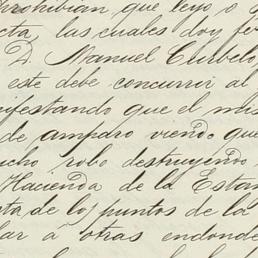 prohibian, que leyo o
cta, las cuales doy fe
D. Manuel Curbelo,
este debe concurrir al
ifestando que el mis
de amparo viendo que
ucho robo destruyendo
Hacienda de la Estan
ta, de los puntos de la
lar a otras endonde